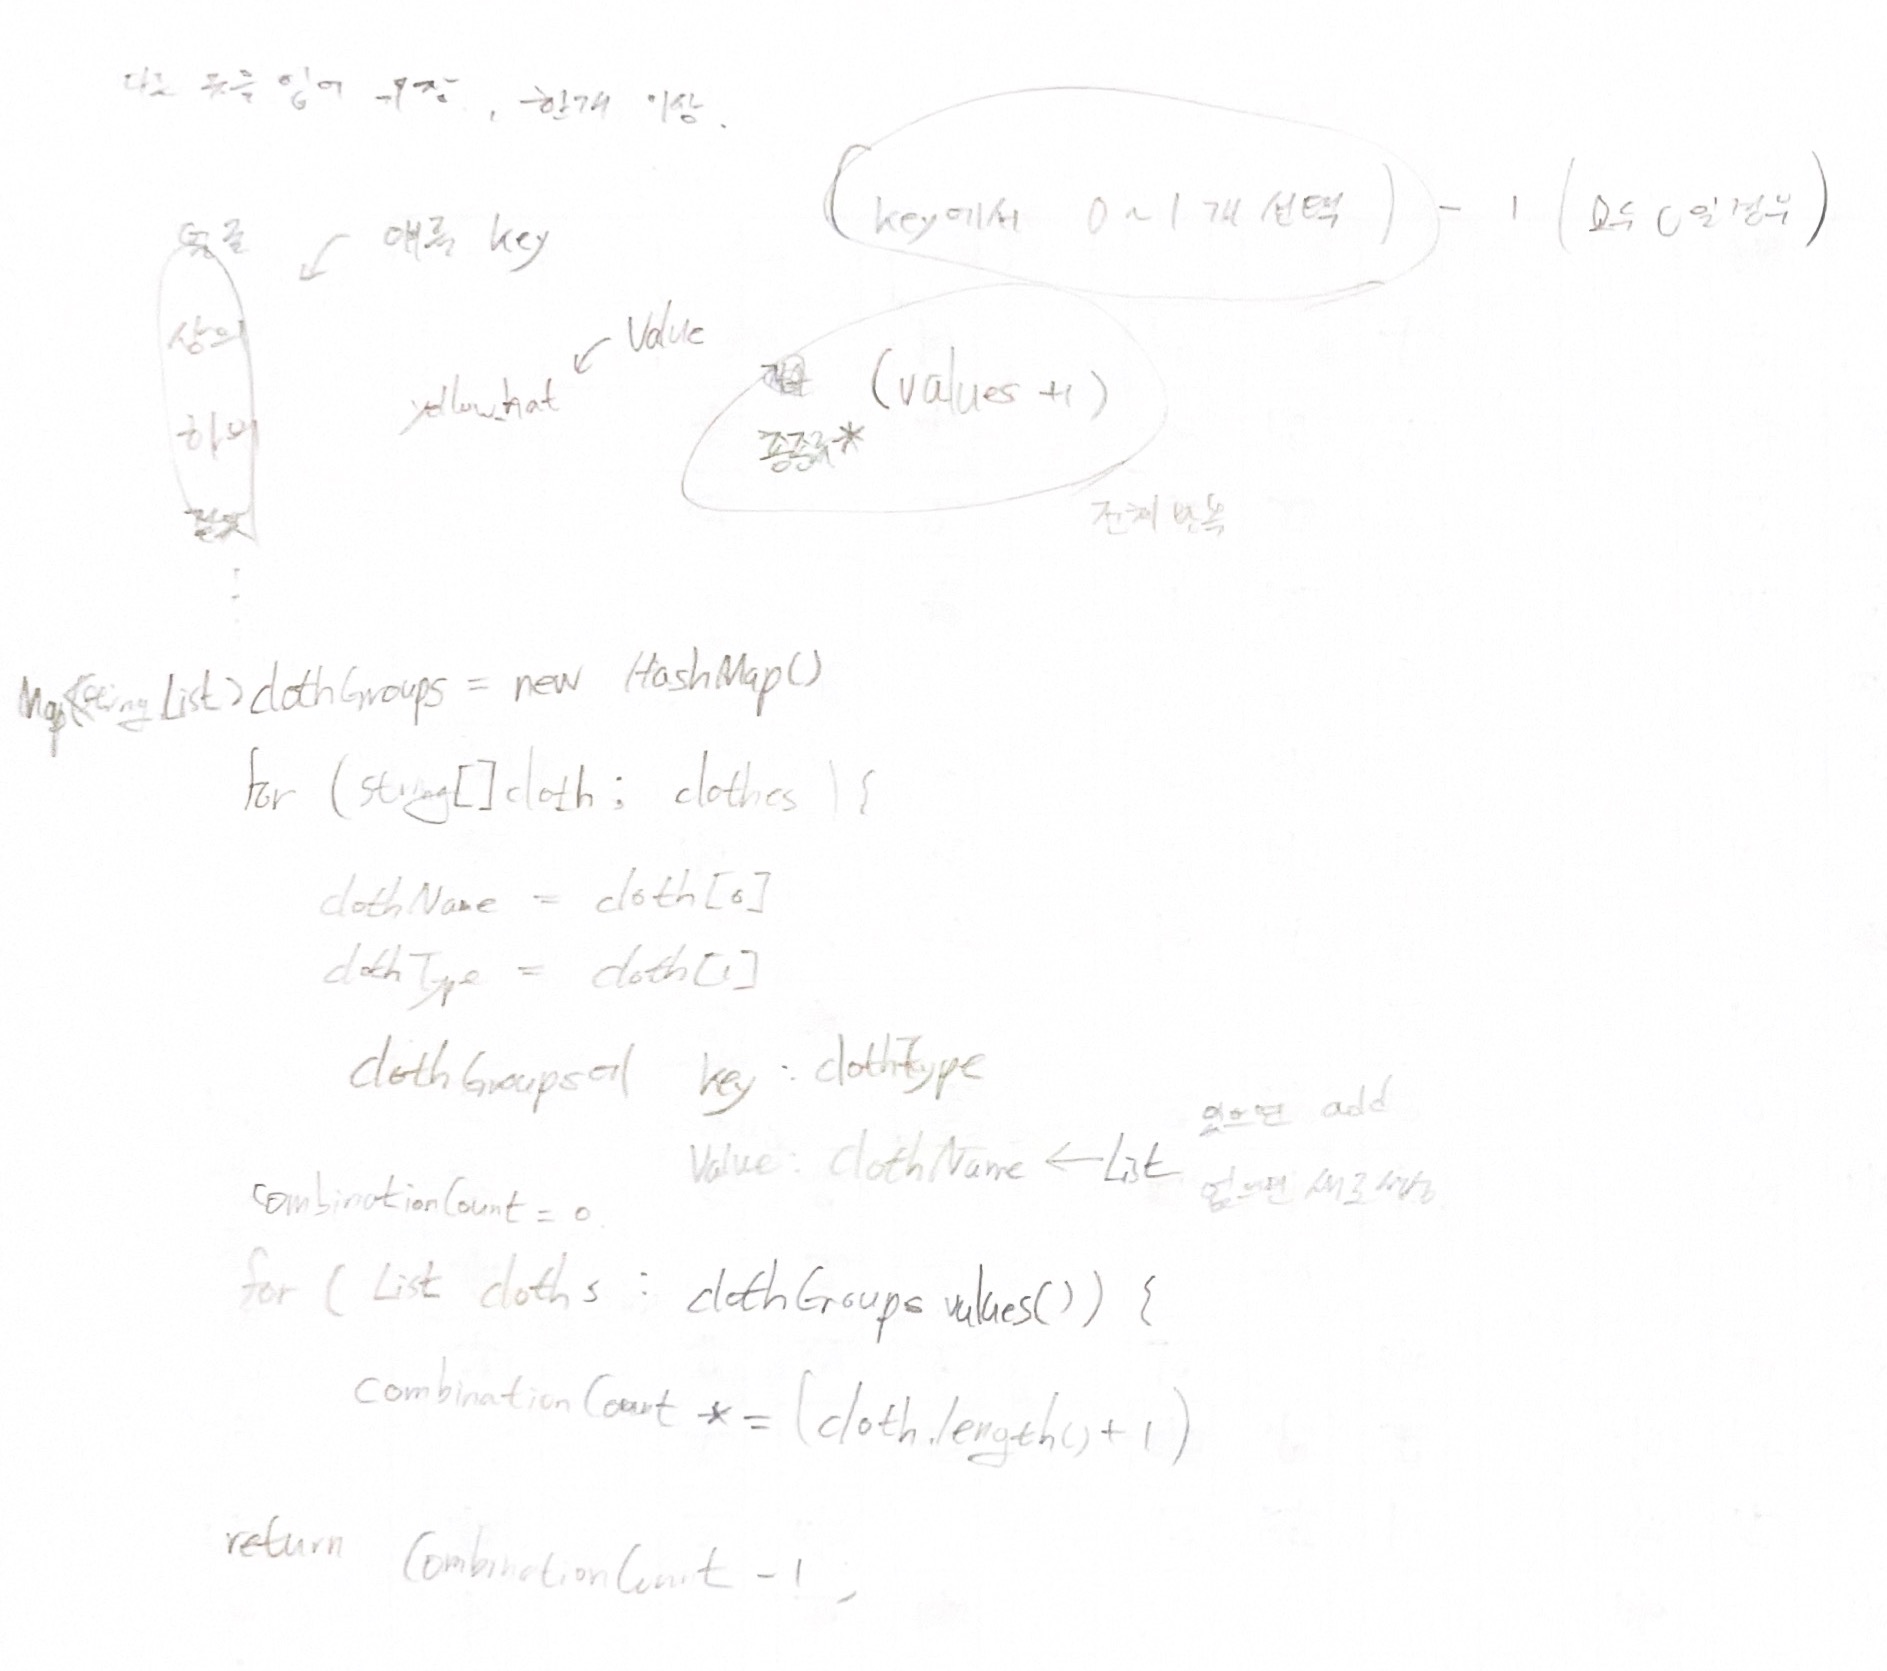 다른 옷을 입어 위장, 한개 이상.
(key에서 0~1개 선택) - 1 (모두 0일경우)
얘를 key
상의
하의
Value
yellowhat
(values +1)
종류*
전체 반복
Map<String List> clothGroups = new HashMap()
for (String[] cloth : clothes) {
clothName = cloth[0]
clothType = cloth[1]
clothGroups에 key : clothType
있으면 add
Value : clothName ← List
없으면 새로 생성
combinationCount = 0.
for ( List cloths : clothGroups values()) {
combinationCount *= (cloth.length()+1)
return CombinationCount -1 ;